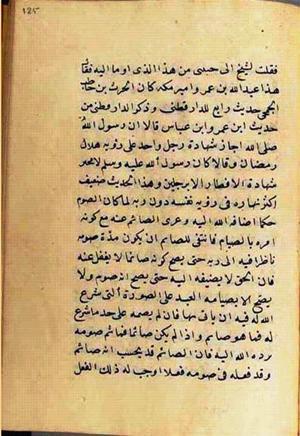 ١٢٥
فقلت لشيخ الى جنبى من هذا الذى اوما اليه فقال
هذا عبدالله بن عمر وامير مكة كان الحرث بن حاطب
الجمحى حديث رابع للدارقطنى وذكر الدارقطنى من
حديث ابن عمر وابن عباس قالا ان رسول الله
صلى الله اجاز شهادة رجل واحد على رؤية هلال
رمضان وقالا كان رسول الله عليه وسلم لا يجيز
شهادة الافطار الا برجلين وهذا الحديث ضعيف
نهاره فى رؤية نفسه دون ربه لما كان الصوم
حكما اضافه الله اليه وعرى الصائم عنه مع كونه
امره بالصيام فانبغى للصايم ان يكون مدة صومه
ناظرا فيه الى ربه حتى يصح كونه صائما لا يغفل عنه
فان الحق لا يضيفه اليه حتى يصح انه صوم ولا
يصح الا بصيامه العبد على الصورة التى شرع
الله له فيه ان ياتى بها فان لم يصمه على حد ما شرع
له فما هو صائم واذا لم يكن صائما فما ثم صوم
يرده الله اليه فان الصائم قد يحسب انه صائم
وقد فعله فى صومه فعلا اوجب له ذلك الفعل